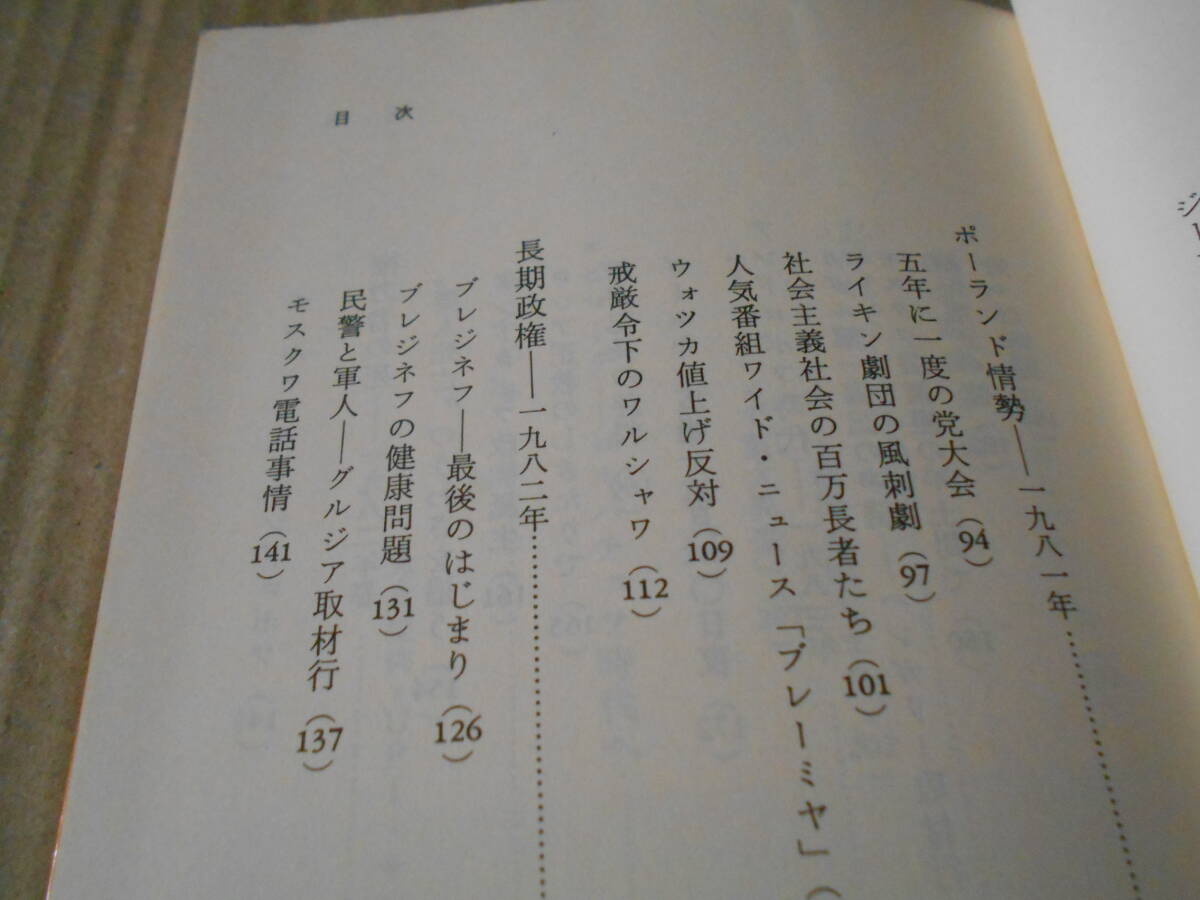 目次
ポーランド情勢――一九八一年……………
五年に一度の党大会(94)
ライキン劇団の風刺劇(97)
社会主義社会の百万長者たち(101)
人気番組ワイド・ニュース「ブレーミヤ」(
ウォツカ値上げ反対(109)
戒厳令下のワルシャワ(112)
長期政権――一九八二年……………
ブレジネフ――最後のはじまり(126)
ブレジネフの健康問題(131)
民警と軍人――グルジア取材行(137)
モスクワ電話事情(141)